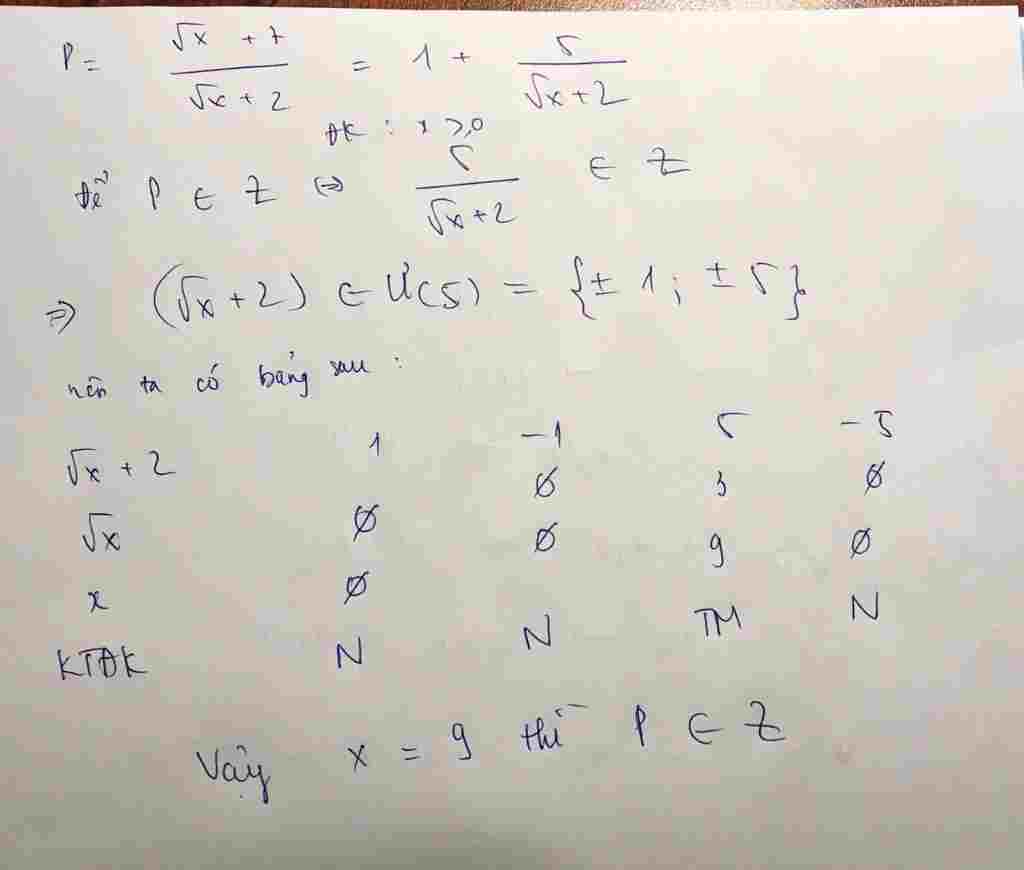 P = (√x + 7)/(√x + 2) = 1 + 5/(√x + 2)
ĐK : x ≥ 0
Để P ∈ Z ⇔ 5/(√x + 2) ∈ Z
⇒ (√x + 2) ∈ Ư(5) = {± 1; ± 5}
nên ta có bảng sau :
√x + 2 1 -1 5 -5
√x ∅ ∅ 3 ∅
x ∅ ∅ 9 ∅
KTĐK N N TM N
Vậy x = 9 thì P ∈ Z